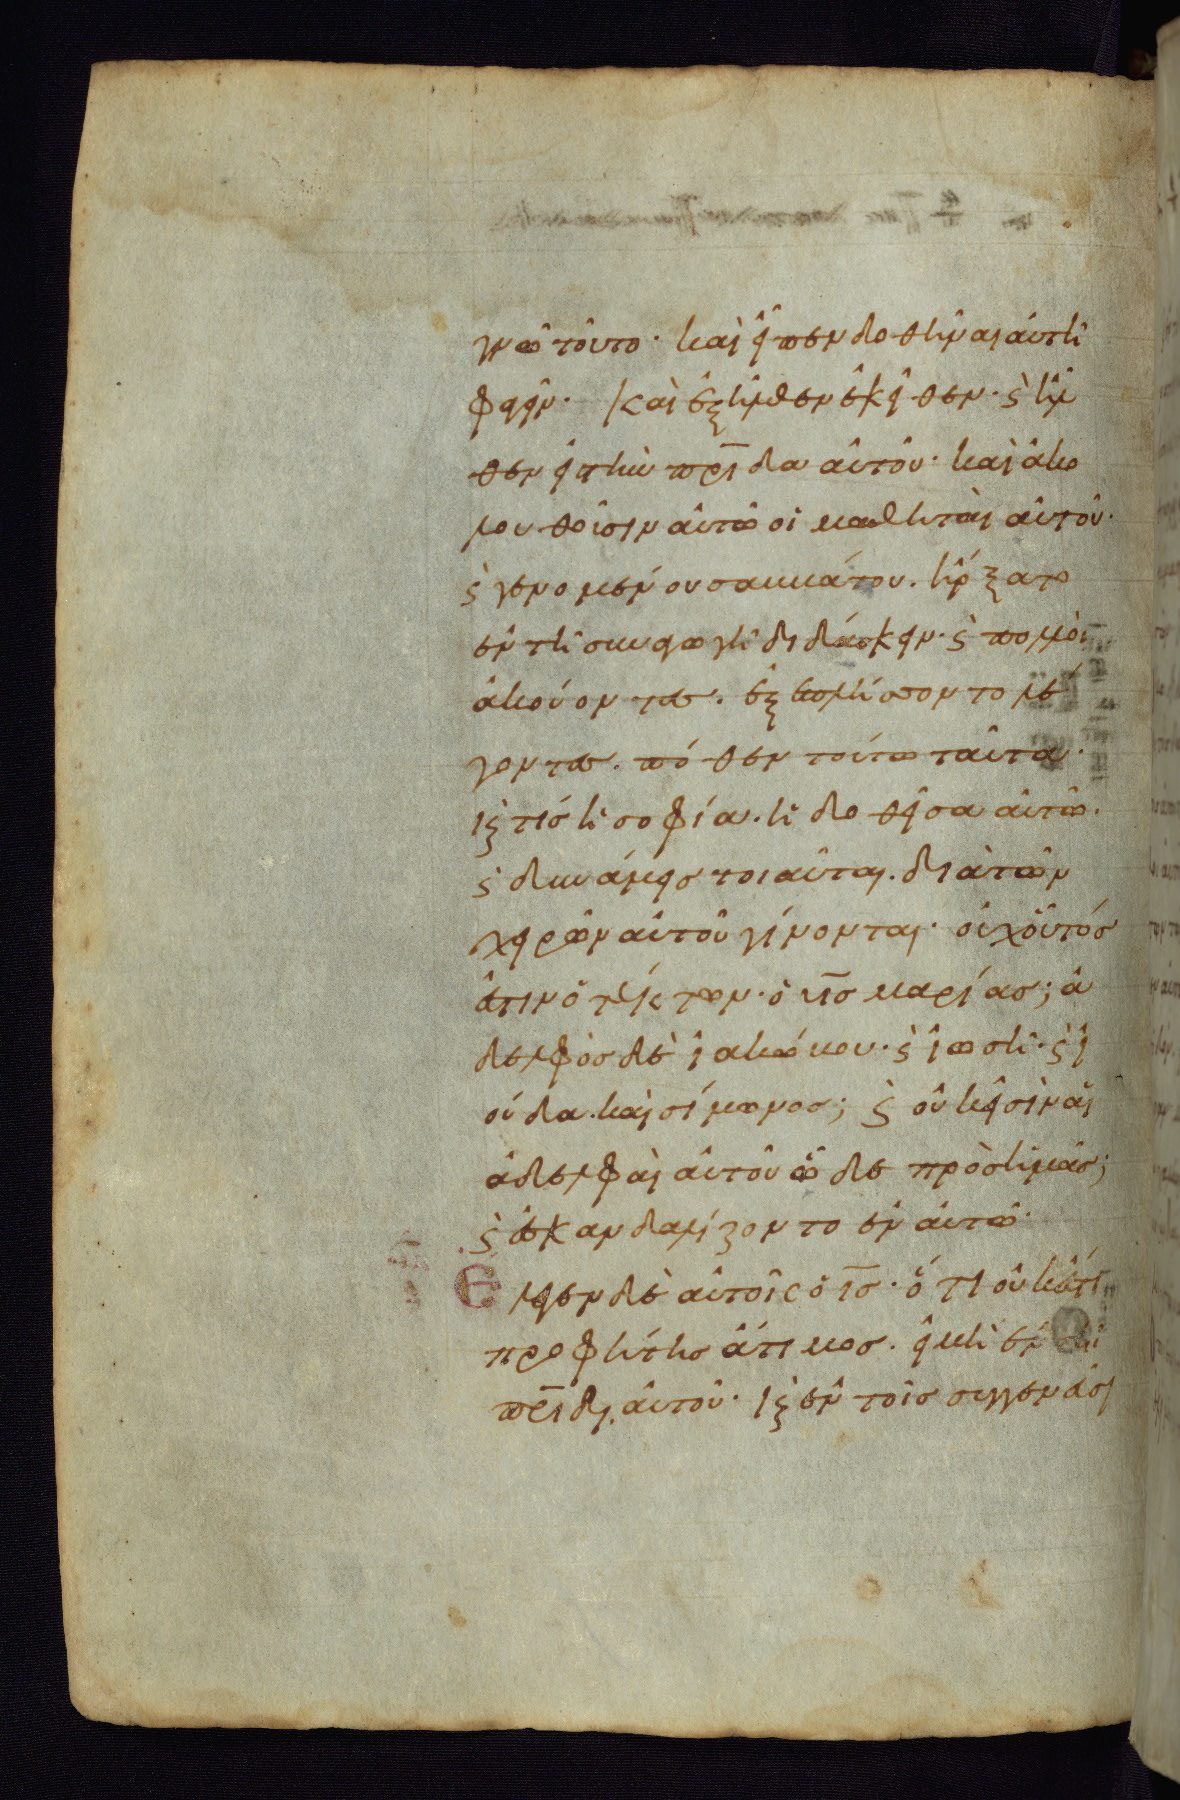 γνῶ τοῦτο· καὶ εἶπεν δοθῆναι αὐτῆ
φαγεῖν· Καὶ ἐξῆλθεν ἐκεῖθεν· ϗ ἦλ
θεν εἰς τὴν πρ̅ιδα αὐτοῦ· καὶ ἀκο
λουθοῦσιν αὐτῶ οἱ μαθηταὶ αὐτοῦ·
ϗ γενομένου σαββάτου. ἤρξατο
ἐν τῆ συναγωγῆ διδάσκειν· ϗ πολλοὶ
ἀκούοντες. ἐξεπλήσσοντο λέ
γοντες. πόθεν τούτω ταῦτα·
ϗ τίς ἡ σοφία. ἡ δοθεῖσα αὐτῶ.
ϗ δυνάμεις τοιαῦται. διὰ τῶν
χειρῶν αὐτοῦ γίνονται· οὐχ οὗτός
ἐστιν ὁ τέκτων· ὁ υ̅ς μαρίας; ἀ
δελφὸς δὲ ἰακώβου· ϗ ἰωσῆ· ϗ ἰ
ούδα. καὶ σίμωνος; ϗ οὐκ εἰσὶν αἱ
ἀδελφαὶ αὐτοῦ ὧδε πρὸς ἡμᾶς;
ϗ ἐσκανδαλίζοντο ἐν αὐτῶ·
Ἔλεγεν δὲ αὐτοῖς ὁ ι̅ς· ὅτι οὐκ ἔστι
προφήτης ἄτιμος. εἰ μὴ ἐν τῆ
πρ̅ιδι αὐτοῦ· ϗ ἐν τοῖς συγγενέσι